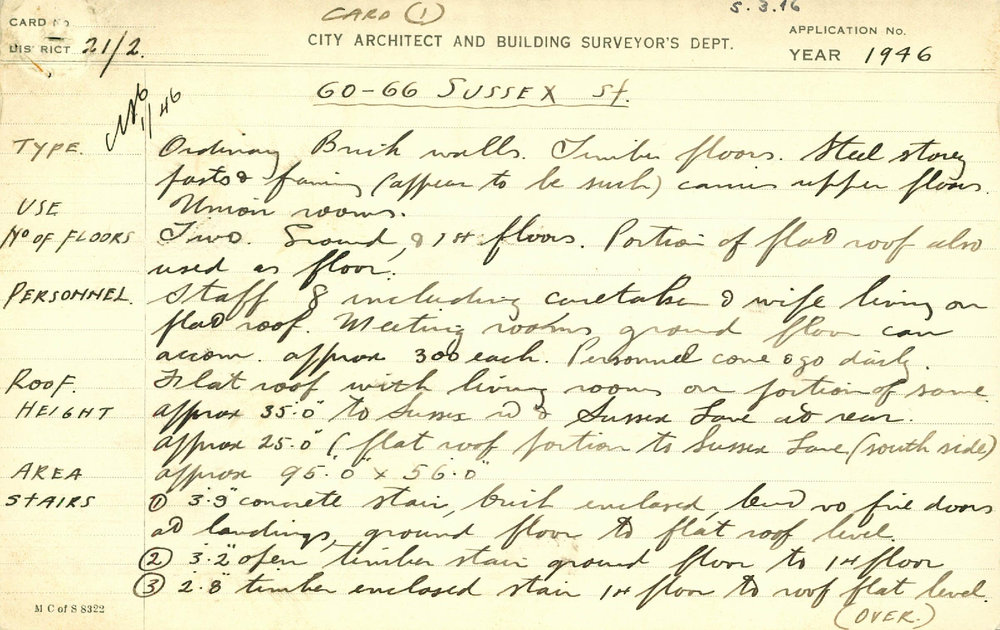 CARD (1)
5.3.16
CARD No
DISTRICT 21/2.
CITY ARCHITECT AND BUILDING SURVEYOR'S DEPT.
APPLICATION No.
YEAR 1946
60-66 SUSSEX St.
1/46
TYPE. Ordinary Brick walls. Timber floors. Steel storey
posts & framing (appear to be such) carries upper floors.
USE Union rooms.
No OF FLOORS Two. Ground, & 1st floors. Portion of flat roof also
used as floor.
PERSONNEL. Staff 8 including caretaker & wife living on
flat roof. Meeting rooms ground floor can
accom. approx 300 each. Personnel come & go daily.
ROOF. Flat roof with living rooms on portion of same
HEIGHT approx 35.0" to Sussex & Sussex Lane at rear.
approx 25.0" (flat roof portion to Sussex Lane (south side)
AREA approx 95.0" x 56.0"
STAIRS (1) 3.9" concrete stair, brick enclosed, but no fire doors
at landings, ground floor to flat roof level.
(2) 3.2" open timber stair ground floor to 1st floor
(3) 2.8" timber enclosed stair 1st floor to roof flat level.
(OVER.)
M C of S 8322